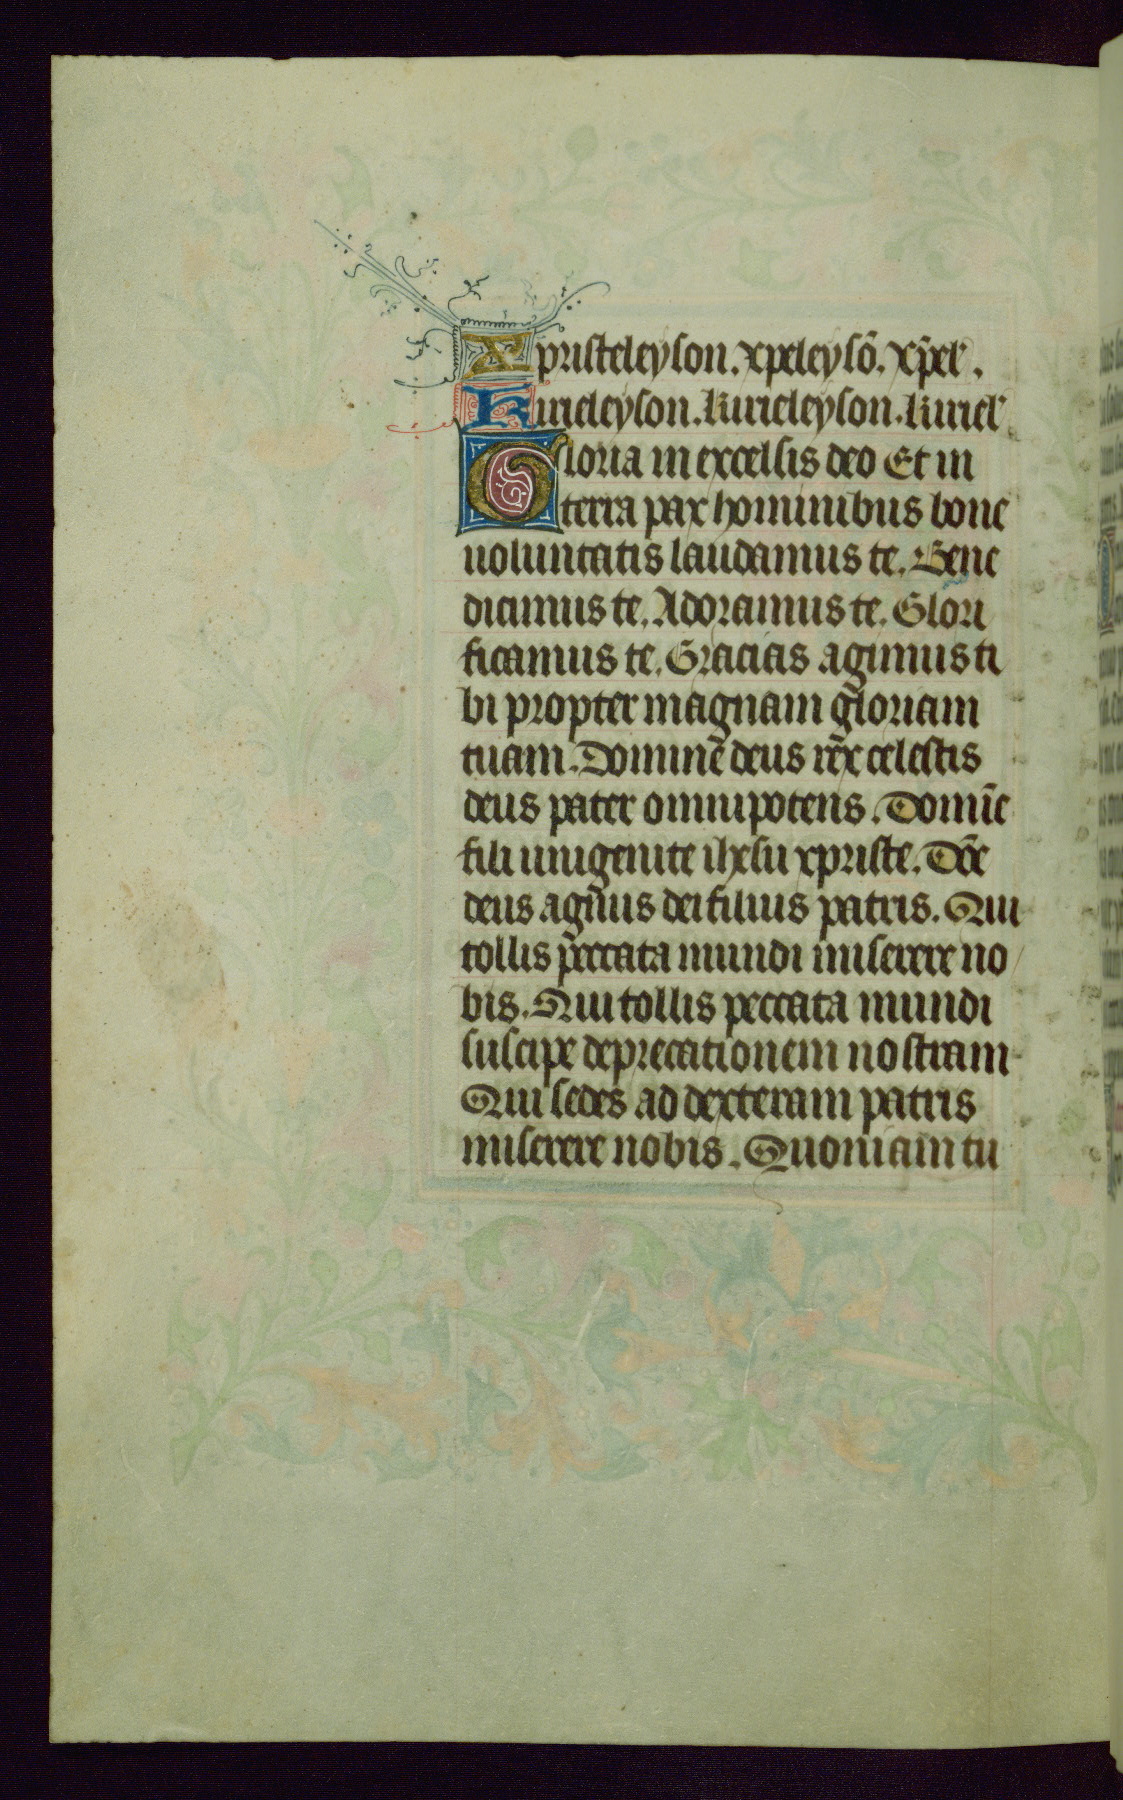 Xpristeleyson. xpeleysō. xp̄el'.
Kurieleyson. kurieleyson. kuriel'
Gloria in excelsis deo Et in
terra pax hominibus bone
uoluntatis laudamus te. Bene
dicimus te. Adoramus te. Glori
ficamus te. Gracias agimus ti
bi propter magnam gloriam
tuam. Dominē deus rēx celestis
deus pater omnipotens. Domīe
fili unigenite ihesu xpriste. Dn̄e
deus agnus dei filius patris. Qui
tollis peccata mundi miserere no
bis. Qui tollis peccata mundi
suscipe deprecationem nostram
Qui sedes ad dexteram patris
miserere nobis. Quoniam tu